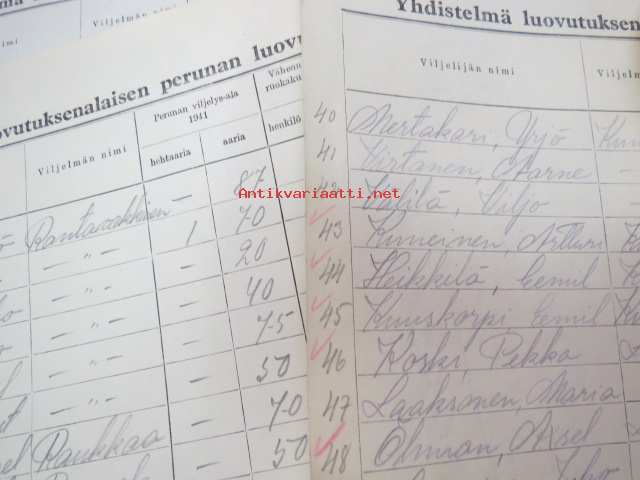 Viljelmän nimi
ovutuksenalaisen perunan luovu
Viljelmän nimi
Perunan viljelys-ala
1941
hehtaaria
aaria
Vähenn
ruokaku
henkilö
Rantavakkinen — 87
— „ — 1 70
— „ — — 20
— „ — — 40
— „ — — 75
— „ — — 50
— „ — — 70
Raukkaa — 50
Yhdistelmä luovutuksen
Viljelijän nimi
Viljelm
40 Mertakari, Yrjö
41 Virtanen, Aarne —
42 Viljo
43 Artturi
44 Heikkilä, Eemil
45 Kuuskorpi, Eemil
46 Koski, Pekka
47 Laaksonen, Maria
48 Öhman, Aksel
Antikvariaatti.net